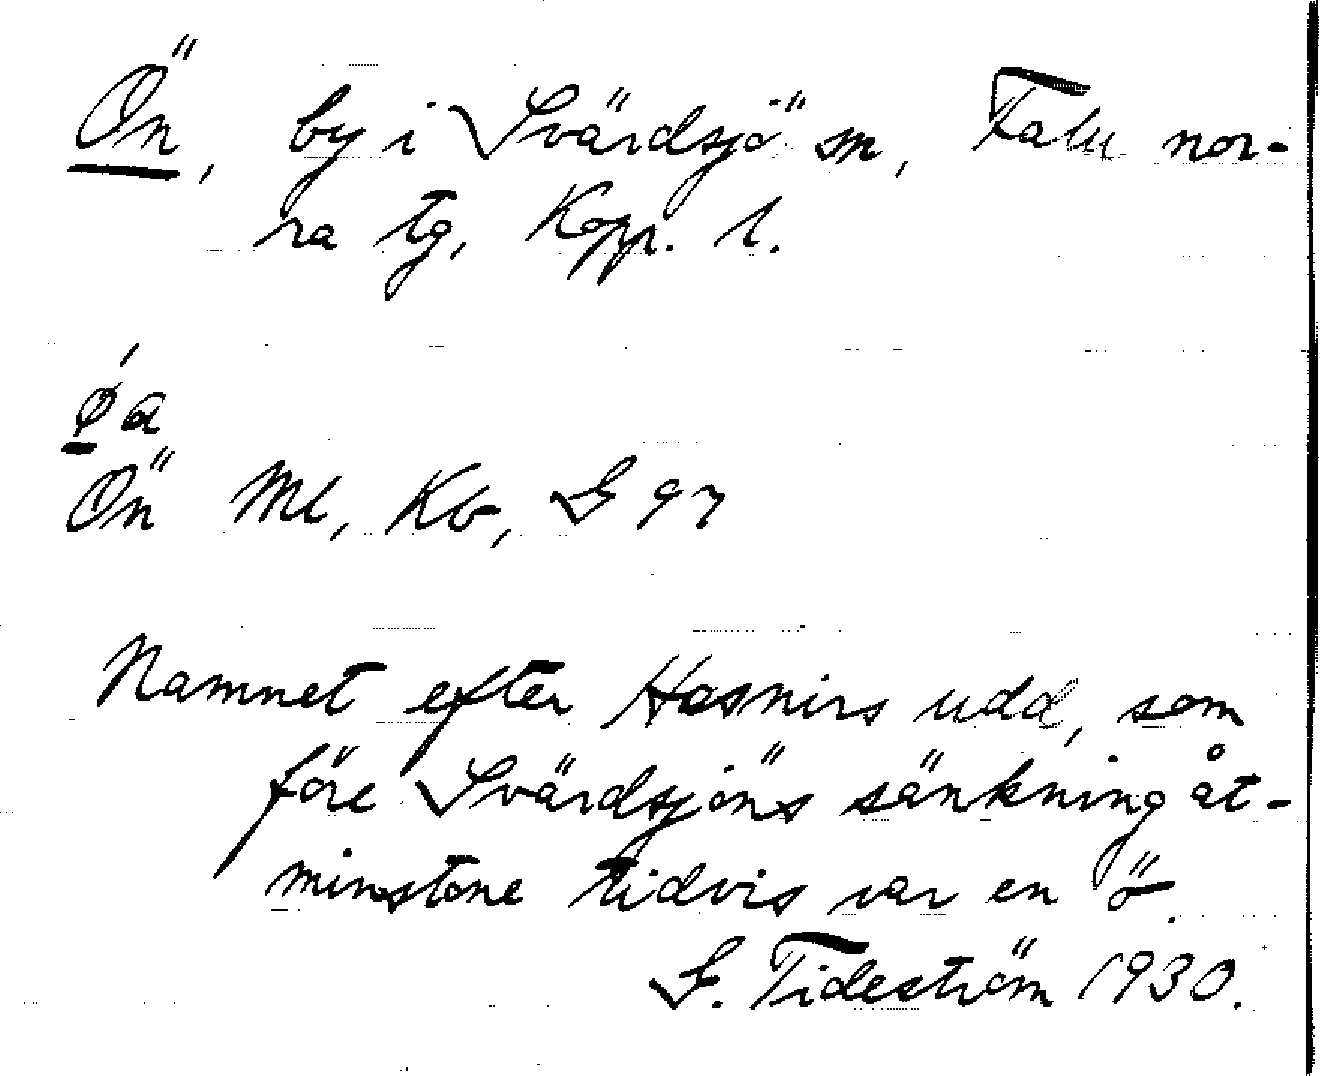 Ön, by i Svärdsjö sn, Falu nor-
ra tg, Kopp. l.
ǿa
Ön Ml, Kb, G 97
Namnet efter Hasnirs udd, som
före Svärdsjöns sänkning åt-
minstone tidvis var en ö.
G. Tideström 1930.